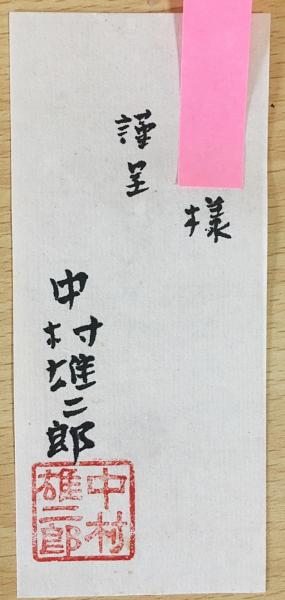 様
謹呈
中村雄二郎
中村
雄二郎